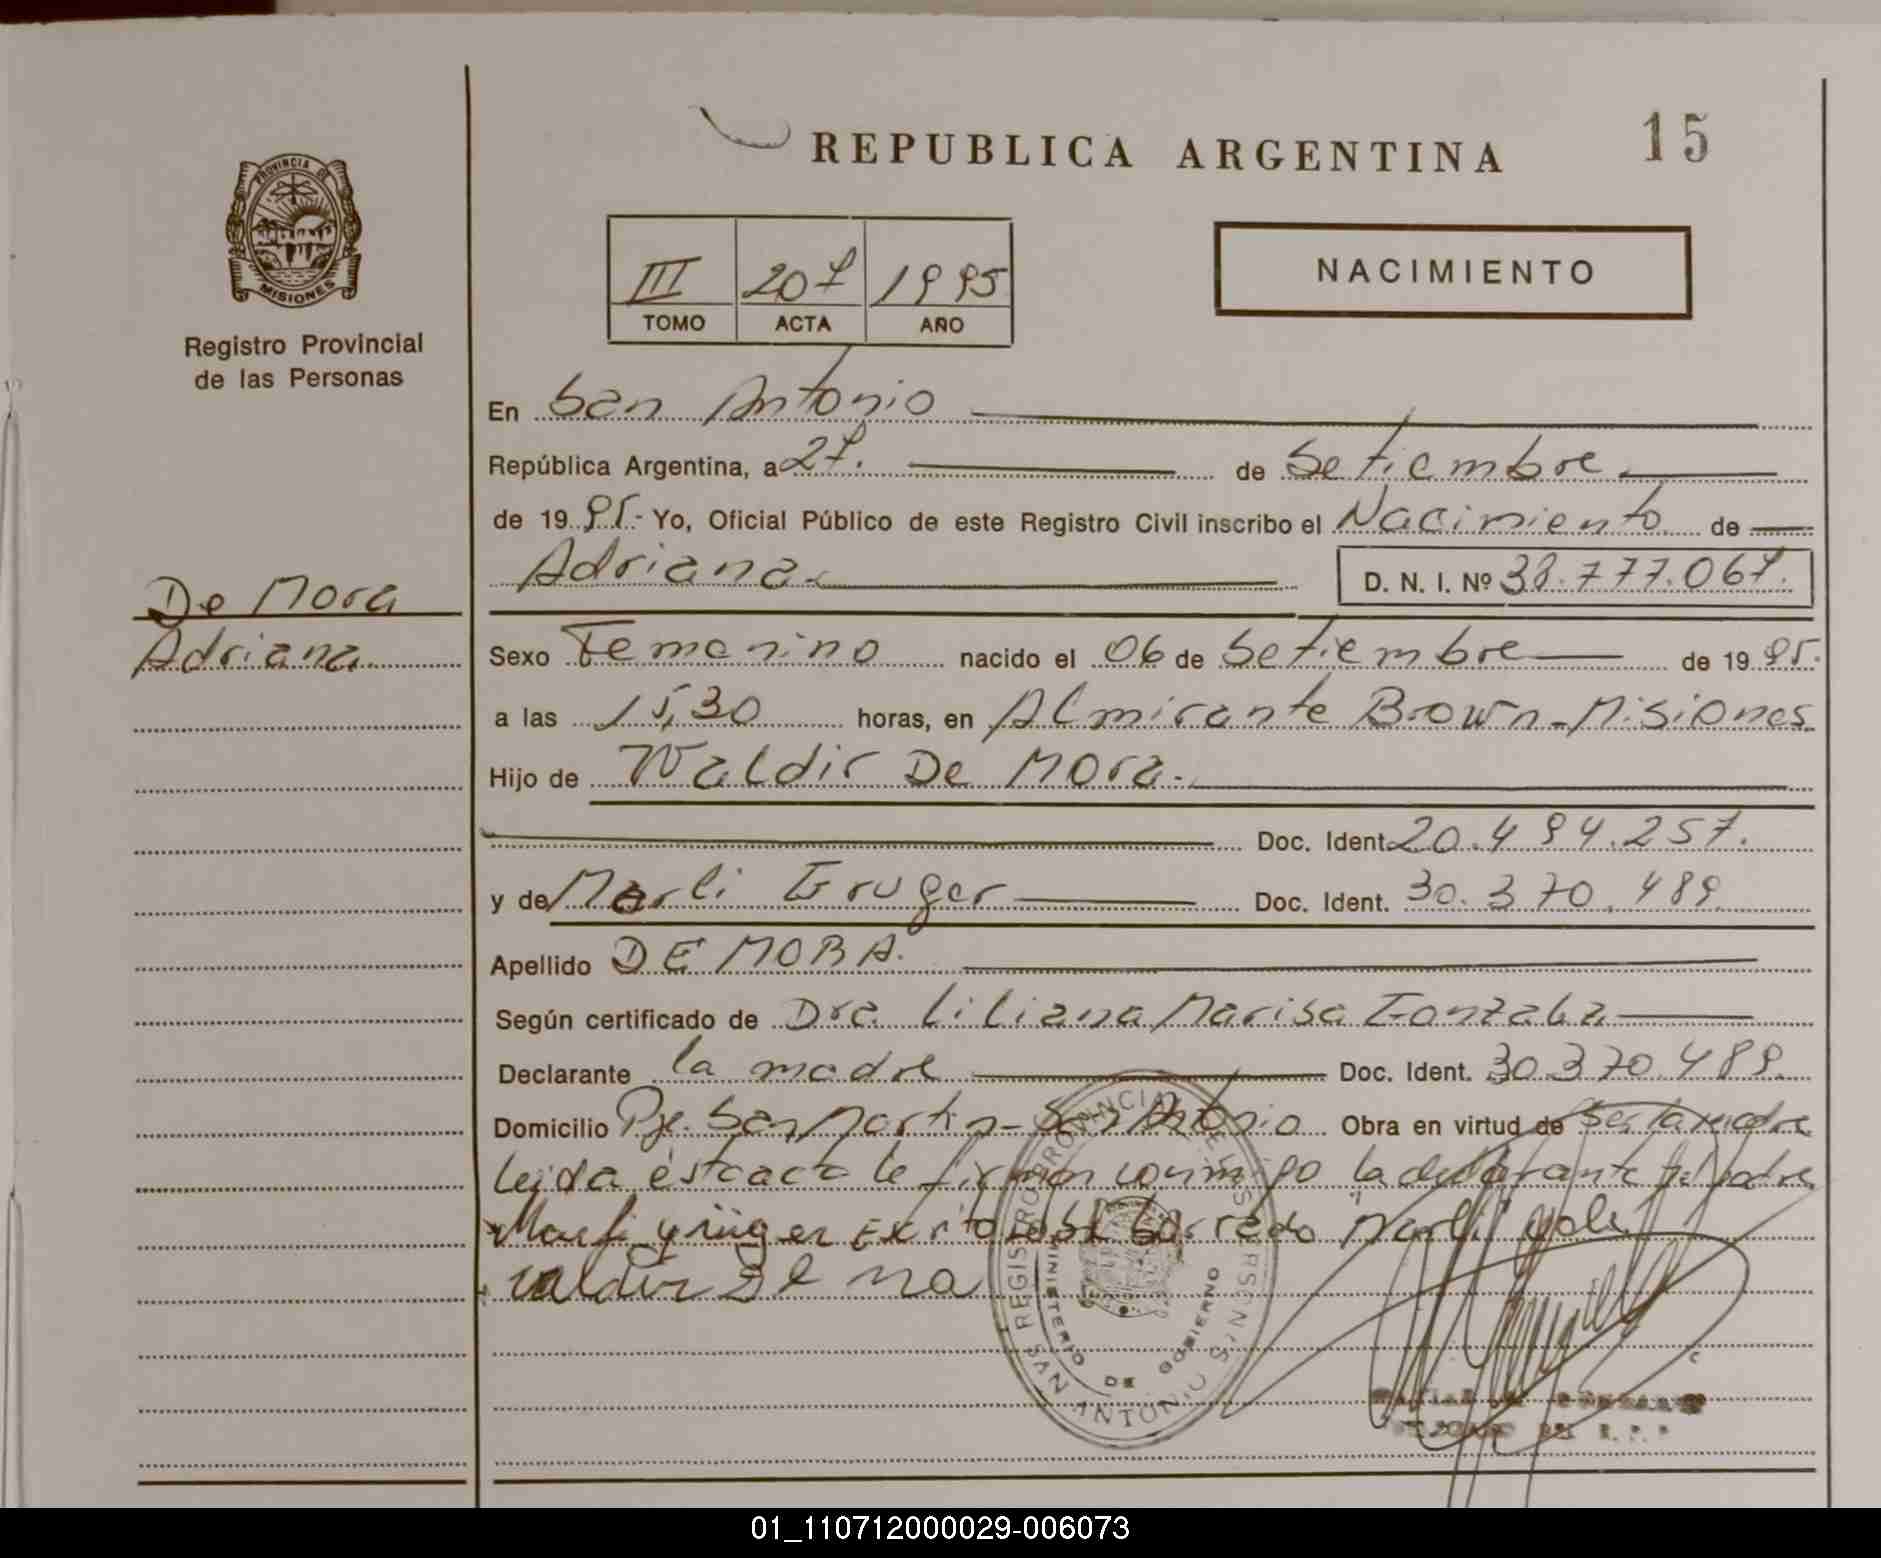 REPUBLICA ARGENTINA
15
PROVINCIA DE
MISIONES
Registro Provincial
de las Personas
III 207 1995
TOMO ACTA AÑO
NACIMIENTO
En San Antonio
República Argentina, a 27. de Setiembre
de 19 95.- Yo, Oficial Público de este Registro Civil inscribo el Nacimiento de
Adriana
D. N. I. Nº 38.777.067.
De Mora
Adriana
Sexo Femenino nacido el 06 de Setiembre de 19 95.
a las 15,30 horas, en Almirante Brown-Misiones
Hijo de Waldir De Mora.
Doc. Ident. 20.494.257.
y de Marli Gruger Doc. Ident. 30.370.489
Apellido DE MORA.
Según certificado de Dra. Liliana Marisa Gonzalez
Declarante la madre Doc. Ident. 30.370.489.
Domicilio Pje. San Martin-San Antonio Obra en virtud de ser la madre
leida esta acta le firman conmigo la declarante y el padre
Marli
REGISTRO PROVINCIAL DE LAS PERSONAS
MINISTERIO DE GOBIERNO
SAN ANTONIO
01_110712000029-006073